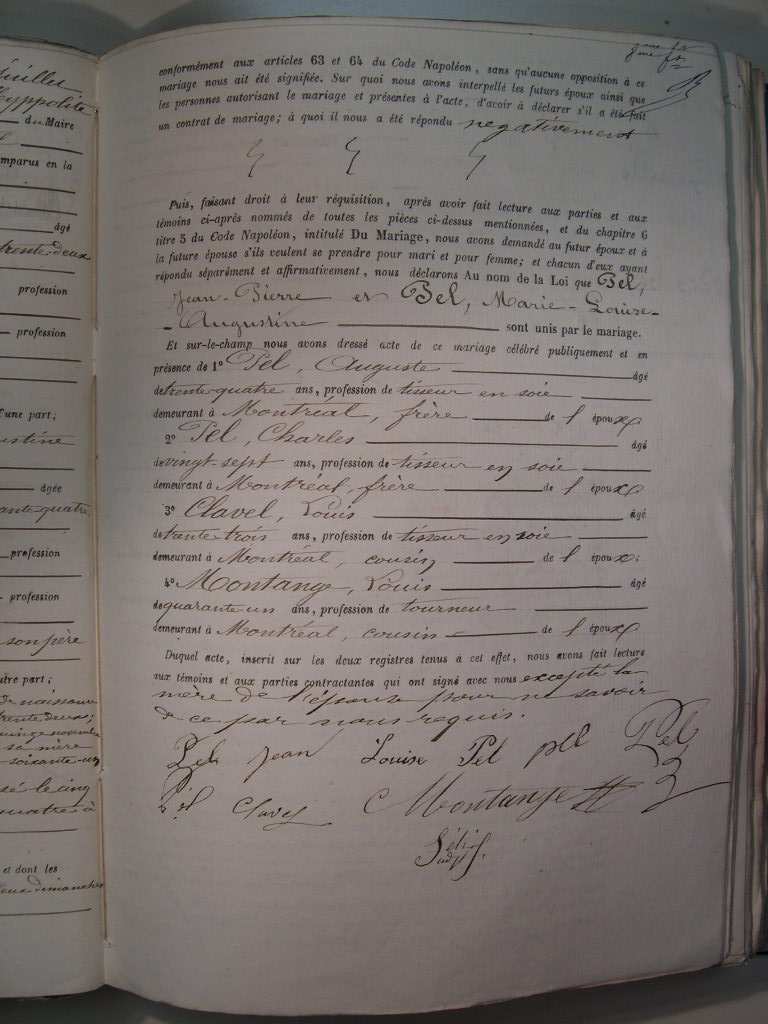 uillet
Hyppolite
du Maire
mparus en la
âgé
trente-deux
profession
profession
'une part;
ustine
âgée
ante-quatre
profession
profession
son père
utre part;
de naissance
trente deux;
quinze novembre
sa mère
soixante-un
sé le cinq
quatre à
et dont les
deux dimanches
conformément aux articles 63 et 64 du Code Napoléon, sans qu'aucune opposition à ce
mariage nous ait été signifiée. Sur quoi nous avons interpellé les futurs époux ainsi que
les personnes autorisant le mariage et présentes à l'acte, d'avoir à déclarer s'il a été fait
un contrat de mariage; à quoi il nous a été répondu negativement
Puis, faisant droit à leur réquisition, après avoir fait lecture aux parties et aux
témoins ci-après nommés de toutes les pièces ci-dessus mentionnées, et du chapitre 6
titre 5 du Code Napoléon, intitulé Du Mariage, nous avons demandé au futur époux et à
la future épouse s'ils veulent se prendre pour mari et pour femme; et chacun d'eux ayant
répondu séparément et affirmativement, nous déclarons Au nom de la Loi que Pel,
Jean-Pierre et Bel, Marie-Louise-
-Augustine sont unis par le mariage.
Et sur-le-champ nous avons dressé acte de ce mariage célébré publiquement et en
présence de 1° Pel, Auguste âgé
de trente-quatre ans, profession de tisseur en soie
demeurant à Montréal, frère de l'époux
2° Pel, Charles âgé
de vingt-sept ans, profession de tisseur en soie
demeurant à Montréal, frère de l'époux
3° Clavel, Louis âgé
de trente trois ans, profession de tisseur en soie
demeurant à Montréal, cousin de l'époux;
4° Montange, Louis âgé
de quarante-un ans, profession de tourneur
demeurant à Montréal, cousin de l'époux
Duquel acte, inscrit sur les deux registres tenus à cet effet, nous avons fait lecture
aux témoins et aux parties contractantes qui ont signé avec nous excepté la
mère de l'épouse pour ne savoir
de ce par nous requis.
Pel Jean Louise Pel pel Pel
Pel Clavel Montange